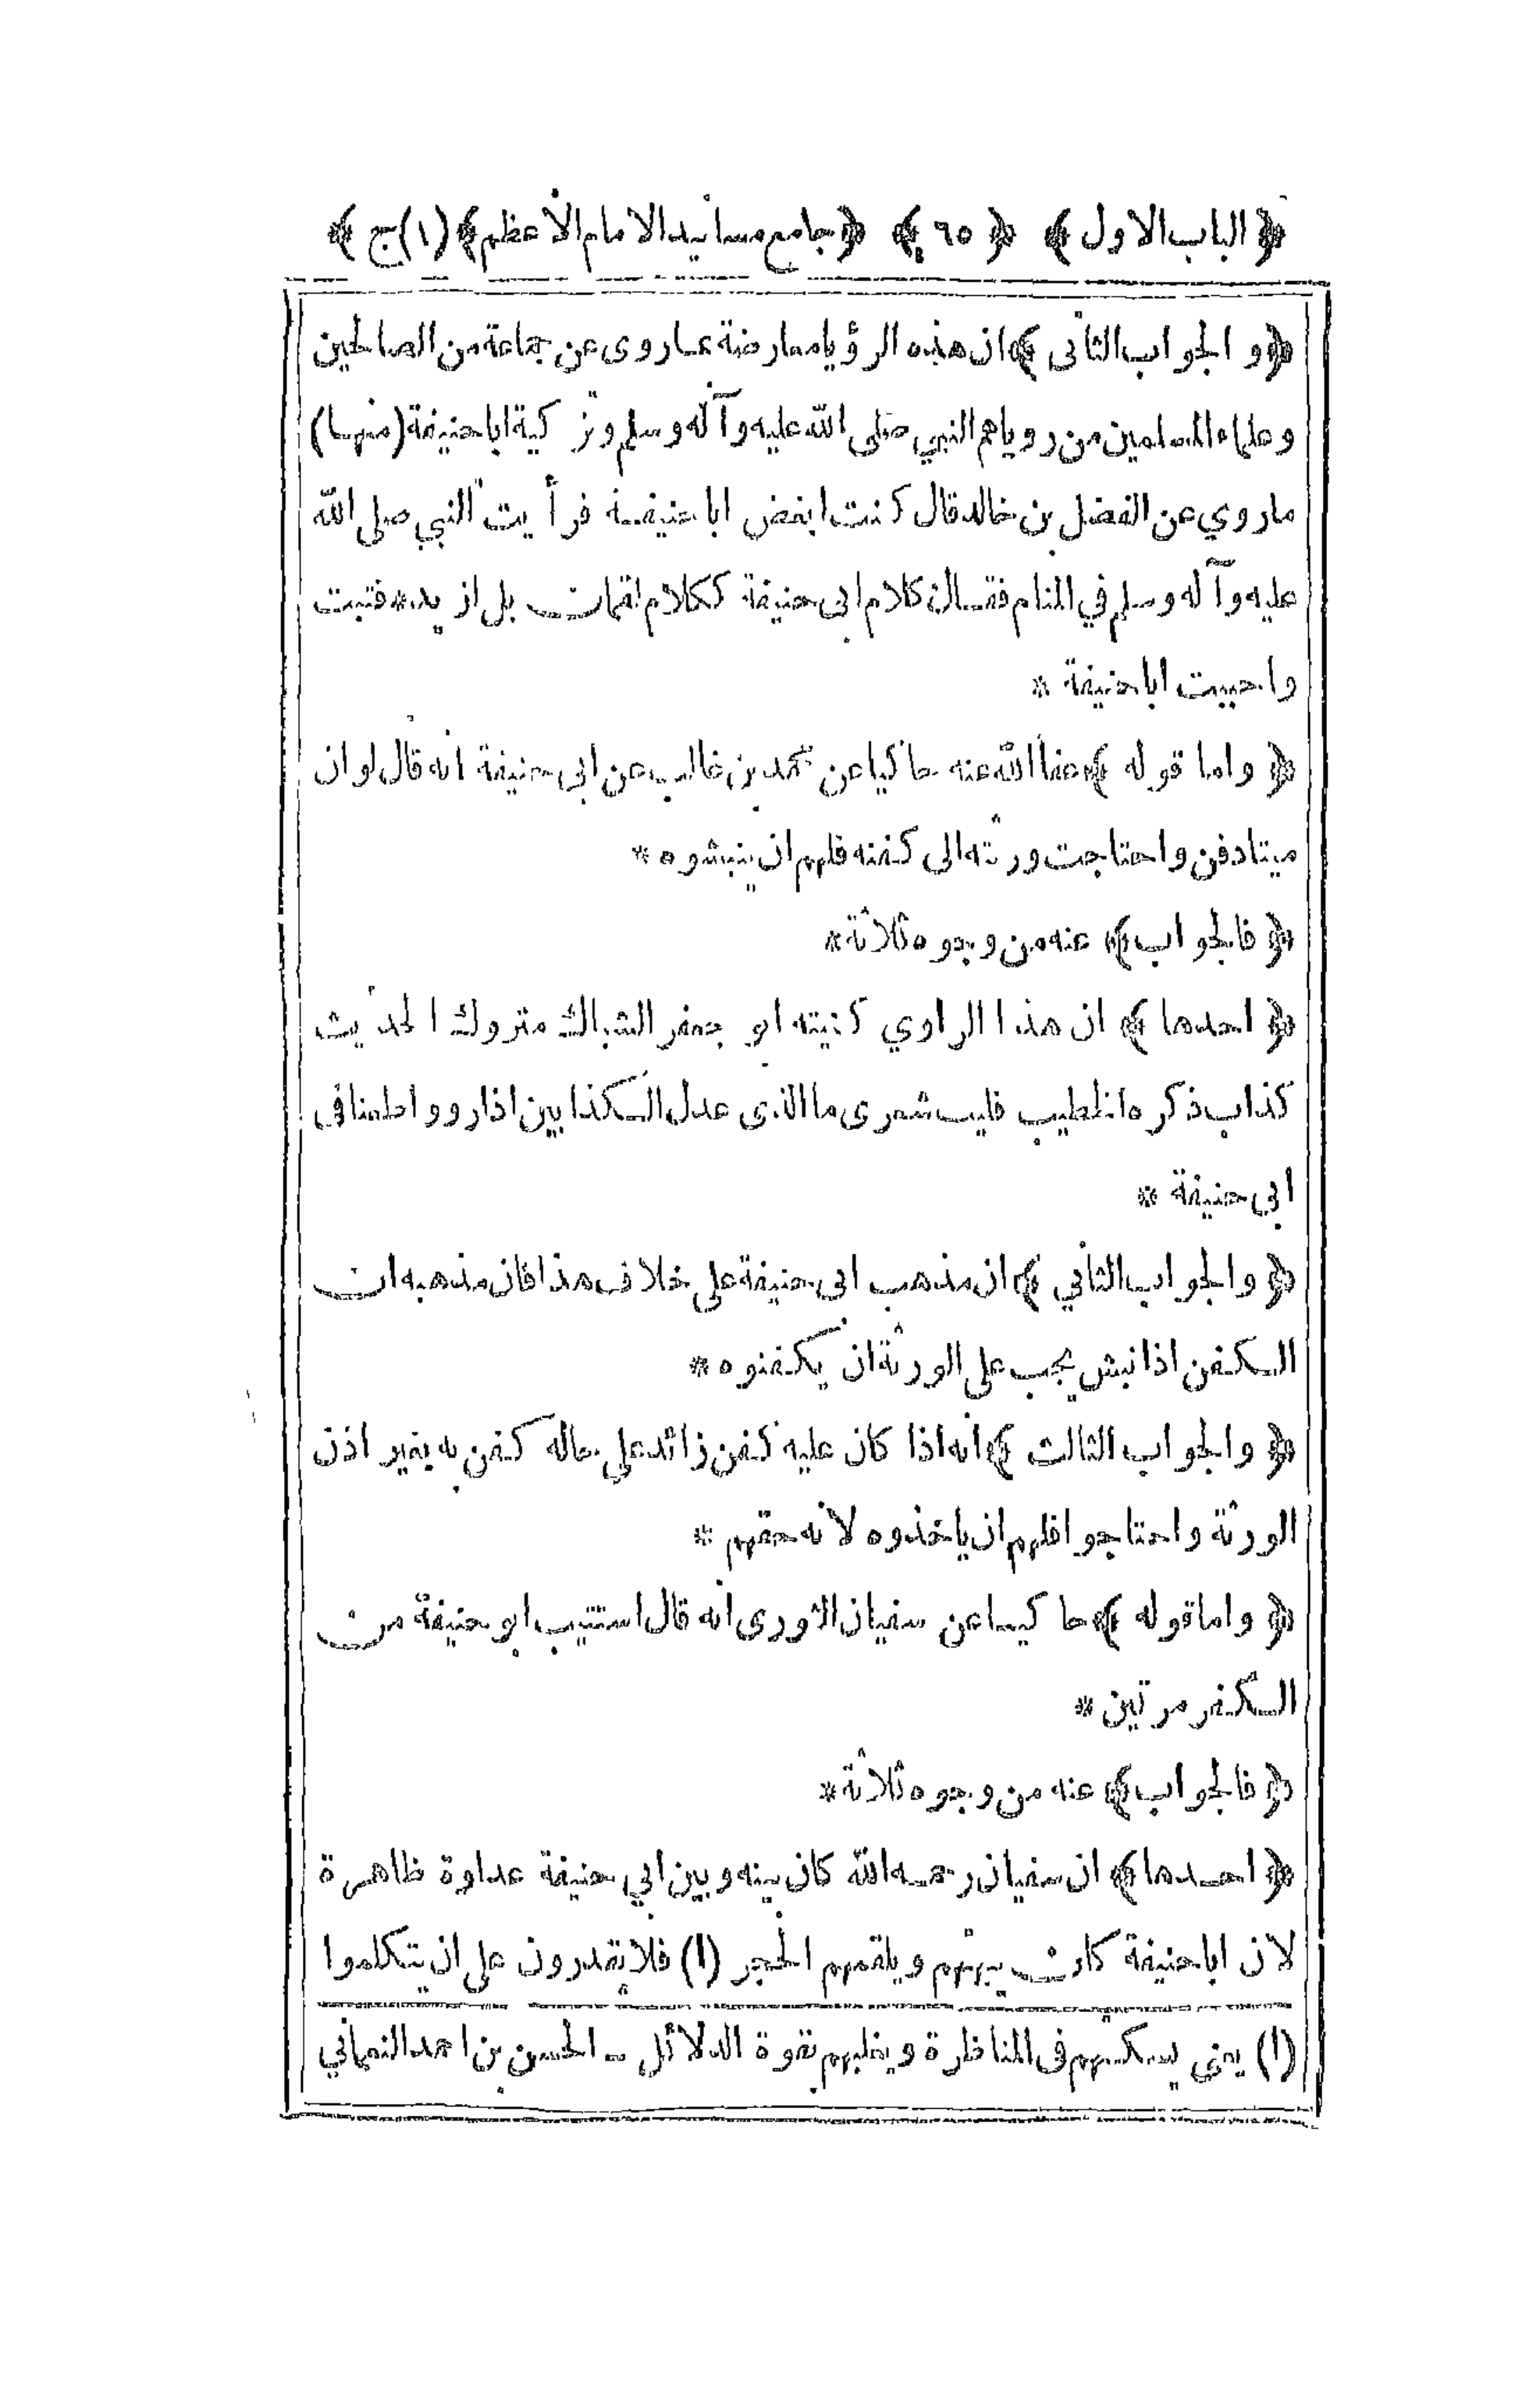 ﴿الباب الاول﴾ ﴿٦٥﴾ ﴿جامع مسانيد الامام الأعظم﴾ (١)ج﴾
﴿و الجواب الثانى﴾ ان هذه الرؤيا معارضة بما روى عن جماعة من الصالحين
وعلماء المسلمين من روياهم النبي صلى الله عليه وآله وسلم وتزكية ابا حنيفة (منها)
ماروي عن الفضل بن خالد قال كنت ابغض ابا حنيفة فرأيت النبي صلى الله
عليه وآله وسلم في المنام فقال ان كلام ابى حنيفة ككلام لقمان بل ازيد * فتبت
واحببت ابا حنيفة *
﴿ واما قوله ﴾ عفا الله عنه حاكيا عن محمد بن غالب عن ابى حنيفة انه قال لو ان
ميتا دفن واحتاجت ورثته الى كفنه فلهم ان ينبشوه *
﴿ فالجواب ﴾ عنه من وجوه ثلاثة *
﴿ احدها ﴾ ان هذا الراوي كنيته ابو جعفر الشباك متروك الحديث
كذاب ذكره الخطيب فليت شعرى ما الذى عدل الكذابين اذا رووا طعنا فى
ابي حنيفة *
﴿ والجواب الثاني ﴾ ان مذهب ابى حنيفة على خلاف هذا فان مذهبه ان
الكفن اذا نبش يجب على الورثة ان يكفنوه *
﴿ والجواب الثالث ﴾ انه اذا كان عليه كفن زائد على حاله كفن به بغير اذن
الورثة واحتاجوا فلهم ان ياخذوه لانه حقهم *
﴿ واما قوله ﴾ حاكيا عن سفيان الثورى انه قال استتيب ابو حنيفة من
الكفر مرتين *
﴿ فالجواب ﴾ عنه من وجوه ثلاثة *
﴿ احدها ﴾ ان سفيان رحمه الله كان بينه وبين ابي حنيفة عداوة ظاهرة
لان ابا حنيفة كان يبهتهم ويلقمهم الحجر (١) فلا يقدرون على ان يتكلموا
(١) يعنى يسكتهم فى المناظرة ويغلبهم بقوة الدلائل ــ الحسن بن احمد النعماني